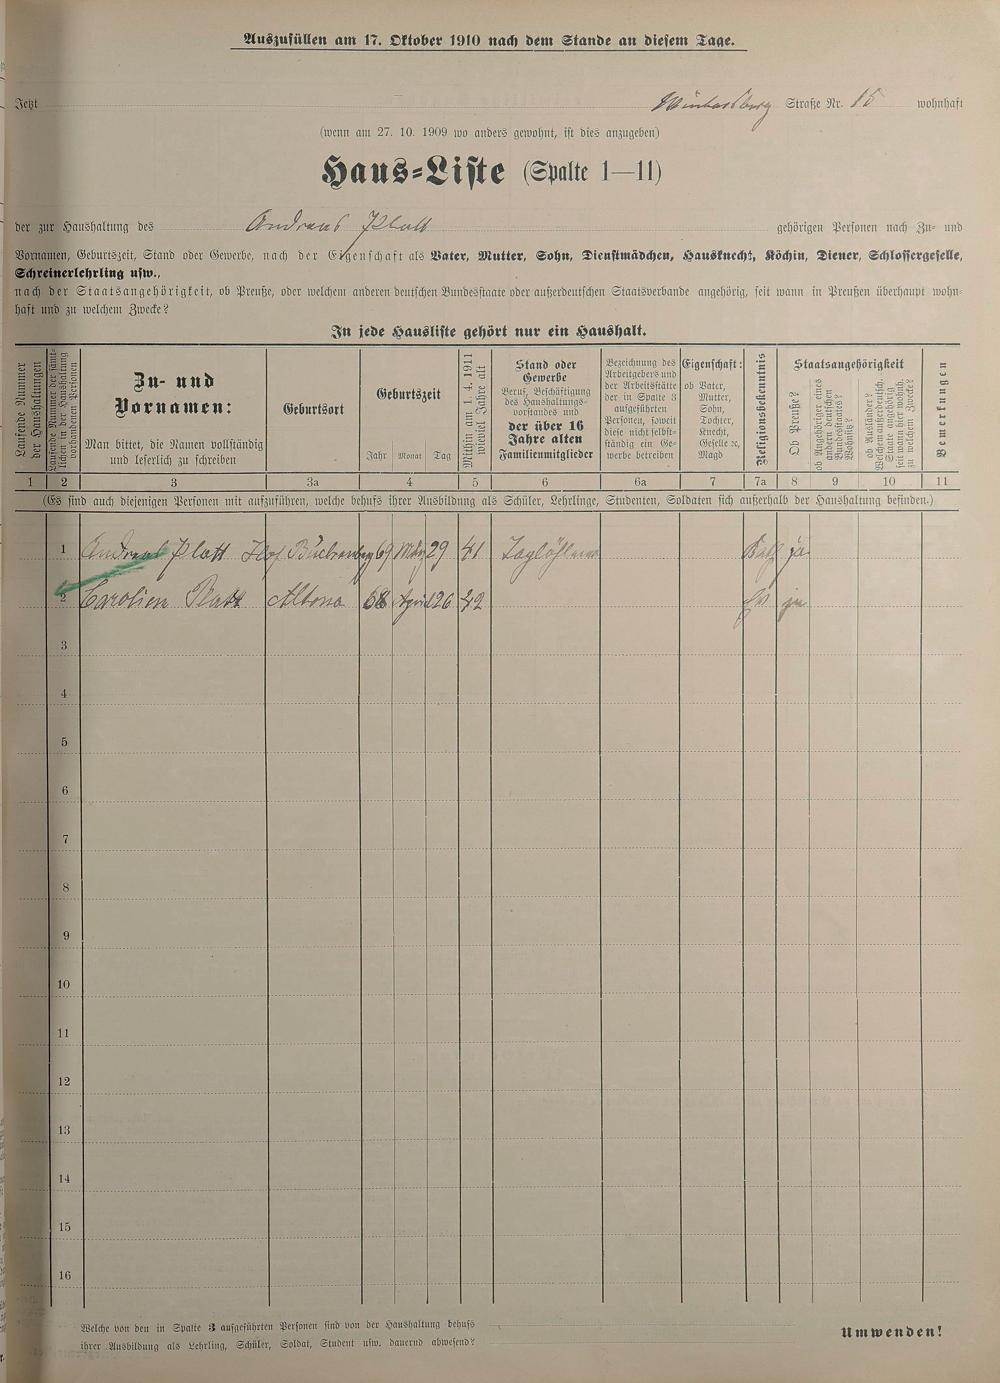 Auszufüllen am 17. Oktober 1910 nach dem Stande an diesem Tage.
Jetzt Straße Nr. 15 wohnhaft
(wenn am 27. 10. 1909 wo anders gewohnt, ist dies anzugeben)
Haus-Liste (Spalte 1—11)
der zur Haushaltung des Andreas Platt gehörigen Personen nach Zu- und
Vornamen, Geburtszeit, Stand oder Gewerbe, nach der Eigenschaft als Vater, Mutter, Sohn, Dienstmädchen, Hausknecht, Köchin, Diener, Schlossergeselle,
Schreinerlehrling usw.,
nach der Staatsangehörigkeit, ob Preuße, oder welchem anderen deutschen Bundesstaate oder außerdeutschen Staatsverbande angehörig, seit wann in Preußen überhaupt wohn-
haft und zu welchem Zwecke?
In jede Hausliste gehört nur ein Haushalt.
Laufende Nummer
der Haushaltungen
Laufende Nummer der sämt-
lichen in der Haushaltung
vorhandenen Personen
Zu- und
Vornamen:
Man bittet, die Namen vollständig
und leserlich zu schreiben
Geburtsort
Geburtszeit
Jahr Monat Tag
Mithin am 1. 4. 1911
wieviel Jahre alt
Stand oder
Gewerbe
Beruf, Beschäftigung
des Haushaltungs-
vorstandes und
der über 16
Jahre alten
Familienmitglieder
Bezeichnung des
Arbeitgebers und
der Arbeitsstätte
der in Spalte 3
aufgeführten
Personen, soweit
diese nicht selbst-
ständig ein Ge-
werbe betreiben
Eigenschaft:
ob Vater,
Mutter,
Sohn,
Tochter,
Knecht,
Geselle ꝛc,
Magd
Religionsbekenntnis
Staatsangehörigkeit
Ob Preuße?
ob Angehöriger eines
andern deutschen
Bundesstaates?
Wohnitz?
ob Ausländer?
Welchem außerdeutsch.
Staate angehörig
seit wann hier wohnh.
zu welchem Zwecke?
Bemerkungen
1 2 3 3a 4 5 6 6a 7 7a 8 9 10 11
(Es sind auch diejenigen Personen mit aufzuführen, welche behufs ihrer Ausbildung als Schüler, Lehrlinge, Studenten, Soldaten sich außerhalb der Haushaltung befinden.)
1 Andreas Platt 69 März 29 41 Kath ja
2 Carolien Platt Altona 68 April 26 42 Ev ja
3
4
5
6
7
8
9
10
11
12
13
14
15
16
Welche von den in Spalte 3 aufgeführten Personen sind von der Haushaltung behufs
ihrer Ausbildung als Lehrling, Schüler, Soldat, Student usw. dauernd abwesend?
Umwenden!